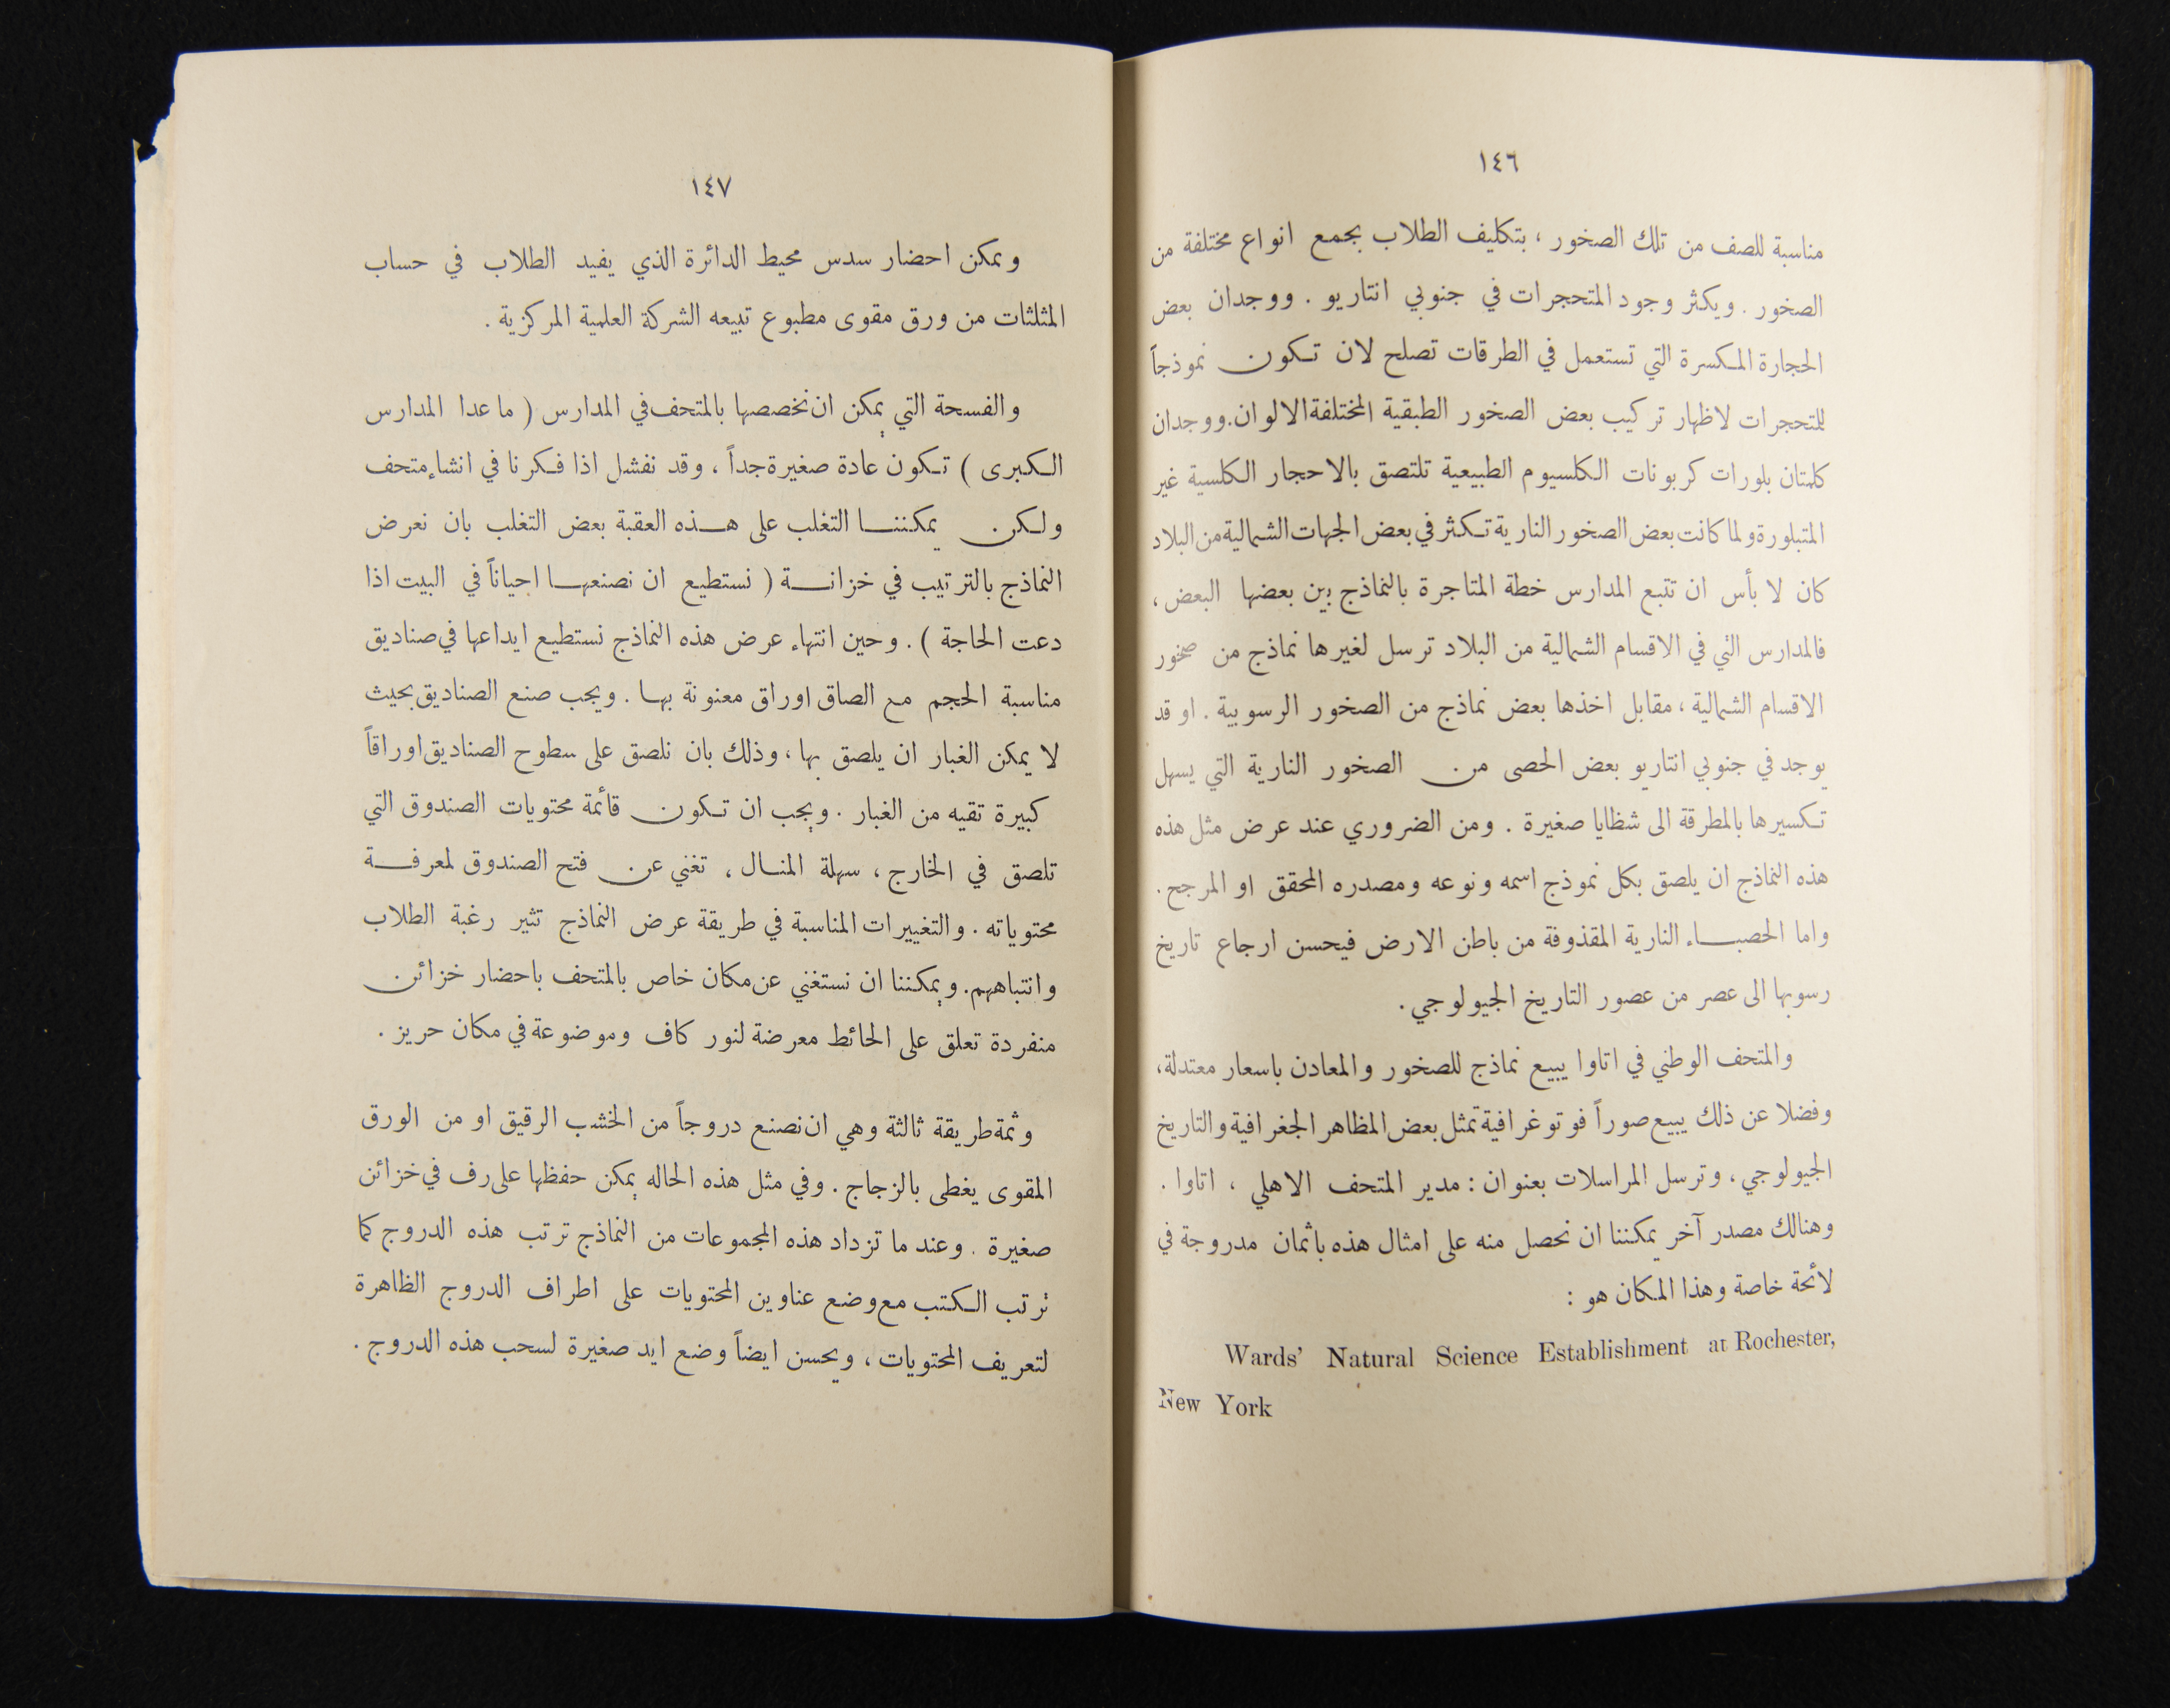 ١٤٦
مناسبة للصف من تلك الصخور ، بتكليف الطلاب بجمع انواع مختلفة من
الصخور . ويكثر وجود المتحجرات في جنوبي انتاريو . ووجدان بعض
الحجارة المكسرة التي تستعمل في الطرقات تصلح لان تكون نموذجاً
للمتحجرات لاظهار تركيب بعض الصخور الطبقية المختلفة الالوان . ووجدان
كلمتان بلورات كربونات الكلسيوم الطبيعية تلتصق بالاحجار الكلسية غير
المتبلورة ولما كانت بعض الصخور النارية تكثر في بعض الجهات الشمالية من البلاد
كان لا بأس ان تتبع المدارس خطة المتاجرة بالنماذج بين بعضها البعض ،
فالمدارس التي في الاقسام الشمالية من البلاد ترسل لغيرها نماذج من صخور
الاقسام الشمالية ، مقابل اخذها بعض نماذج من الصخور الرسوبية . او قد
يوجد في جنوبي انتاريو بعض الحصى من الصخور النارية التي يسهل
تكسيرها بالمطرقة الى شظايا صغيرة . ومن الضروري عند عرض مثل هذه
هذه النماذج ان يلصق بكل نموذج اسمه ونوعه ومصدره المحقق او المرجح .
واما الحصباء النارية المقذوفة من باطن الارض فيحسن ارجاع تاريخ
رسوبها الى عصر من عصور التاريخ الجيولوجي .
والمتحف الوطني في اتاوا يبيع نماذج للصخور والمعادن باسعار معتدلة ،
وفضلا عن ذلك يبيع صوراً فوتوغرافية تمثل بعض المظاهر الجغرافية والتاريخ
الجيولوجي ، وترسل المراسلات بعنوان : مدير المتحف الاهلي ، اتاوا .
وهنالك مصدر آخر يمكننا ان نحصل منه على امثال هذه باثمان مدروجة في
لائحة خاصة وهذا المكان هو :
Wards' Natural Science Establishment at Rochester,
New York
١٤٧
ويمكن احضار سدس محيط الدائرة الذي يفيد الطلاب في حساب
المثلثات من ورق مقوى مطبوع تبيعه الشركة العلمية المركزية .
والفسحة التي يمكن ان نخصصها بالمتحف في المدارس ( ما عدا المدارس
الكبرى ) تكون عادة صغيرة جداً ، وقد نفشل اذا فكرنا في انشاء متحف
ولكن يمكننا التغلب على هذه العقبة بعض التغلب بان نعرض
النماذج بالترتيب في خزانة ( نستطيع ان نصنعها احياناً في البيت اذا
دعت الحاجة ) . وحين انتهاء عرض هذه النماذج نستطيع ايداعها في صناديق
مناسبة الحجم مع الصاق اوراق معنونة بها . ويجب صنع الصناديق بحيث
لا يمكن الغبار ان يلصق بها ، وذلك بان نلصق على سطوح الصناديق اوراقاً
كبيرة تقيه من الغبار . ويجب ان تكون قائمة محتويات الصندوق التي
تلصق في الخارج ، سهلة المنال ، تغني عن فتح الصندوق لمعرفة
محتوياته . والتغييرات المناسبة في طريقة عرض النماذج تثير رغبة الطلاب
وانتباههم . ويمكننا ان نستغني عن مكان خاص بالمتحف باحضار خزائن
منفردة تعلق على الحائط معرضة لنور كاف وموضوعة في مكان حريز .
وثمة طريقة ثالثة وهي ان نصنع دروجاً من الخشب الرقيق او من الورق
المقوى يغطى بالزجاج . وفي مثل هذه الحاله يمكن حفظها على رف في خزائن
صغيرة . وعند ما تزداد هذه المجموعات من النماذج ترتب هذه الدروج كما
ترتب الكتب مع وضع عناوين المحتويات على اطراف الدروج الظاهرة
لتعريف المحتويات ، ويحسن ايضاً وضع ايد صغيرة لسحب هذه الدروج .